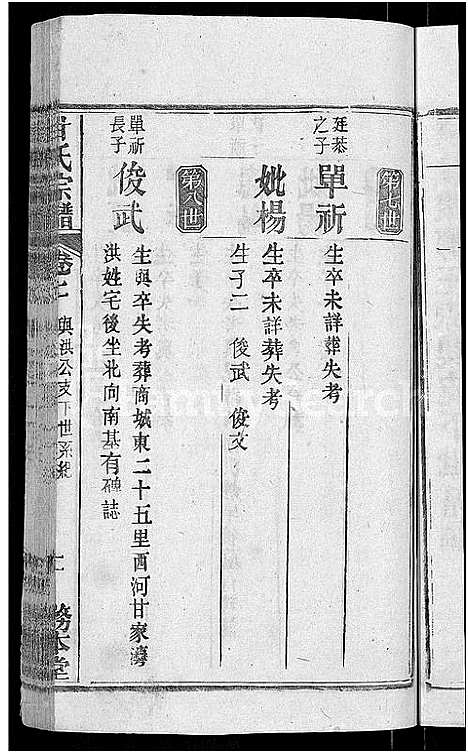 第七世
廷恭
之子
單祈
生卒未詳葬失考
妣楊
生卒未詳葬失考
生子二 俊武 俊文
第八世
單祈
長子
俊武
生與卒失考葬商城東二十五里西河甘家灣
洪姓宅後坐北向南基有碑誌
氏宗譜
卷七
與洪公支下世系總
務本堂
FamilySearch